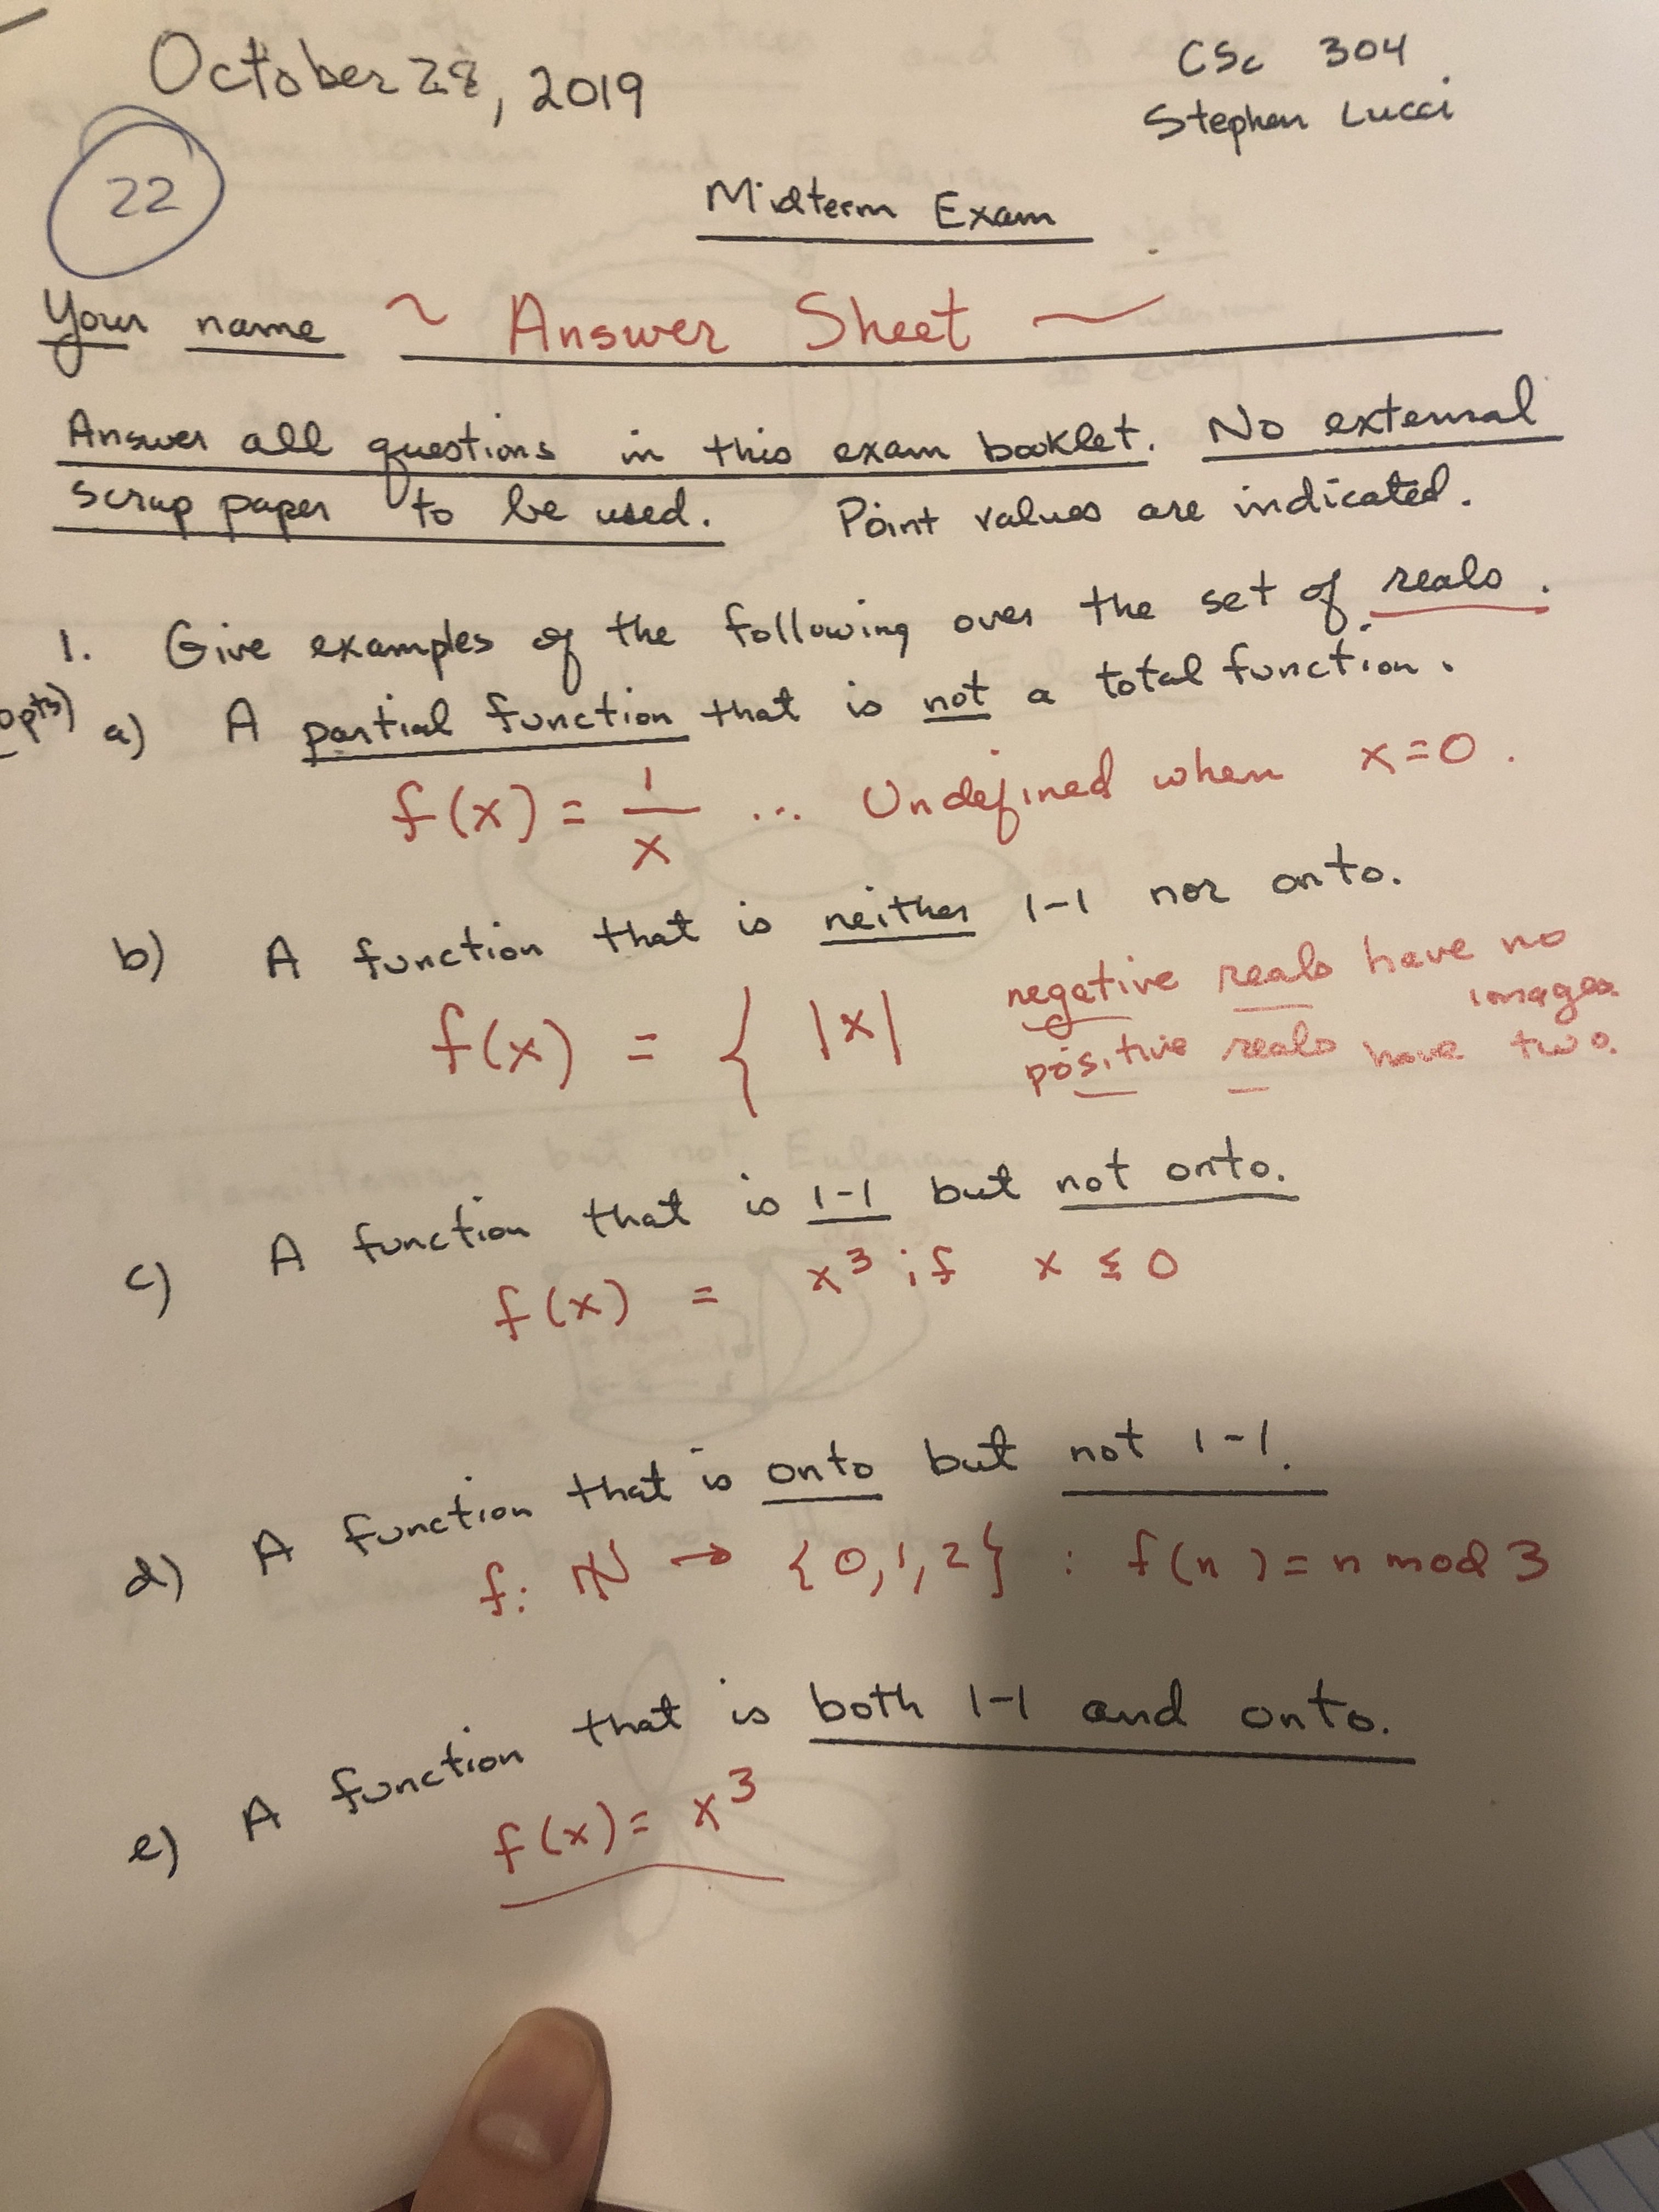 October 28, 2019
CSc 304
Stephen Lucci
22
Midterm Exam
Your name ~ Answer Sheet ~
Answer all questions in this exam booklet. No external
scrap paper to be used. Point values are indicated.
1. Give examples of the following over the set of reals.
pts)
a) A partial function that is not a total function.
f(x) = 1/x ... Undefined when x=0.
b) A function that is neither 1-1 nor onto.
f(x) = { |x|
negative reals have no
images
positive reals have two.
c) A function that is 1-1 but not onto.
f(x) = x³ if x ≤ 0
d) A function that is onto but not 1-1.
f: ℕ → {0,1,2} : f(n) = n mod 3
e) A function that is both 1-1 and onto.
f(x) = x³